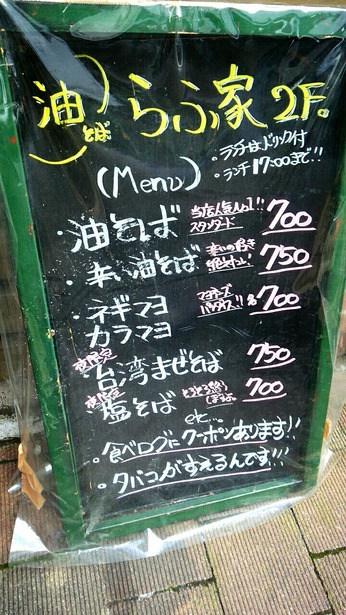 油そば らふ家 2F。
・ランチはドリンク付
・ランチ 17:00まで!!
(Menu)
・油そば 当店人気No.1!! スタンダード 700
・辛い油そば 辛いの好き 750
・ネギマヨ マヨネーズ 700
カラマヨ
夜限定
台湾まぜそば 750
夜限定
塩そば 700
etc...
・食べログにクーポンあります!!
・タバコがすえるんです!!!